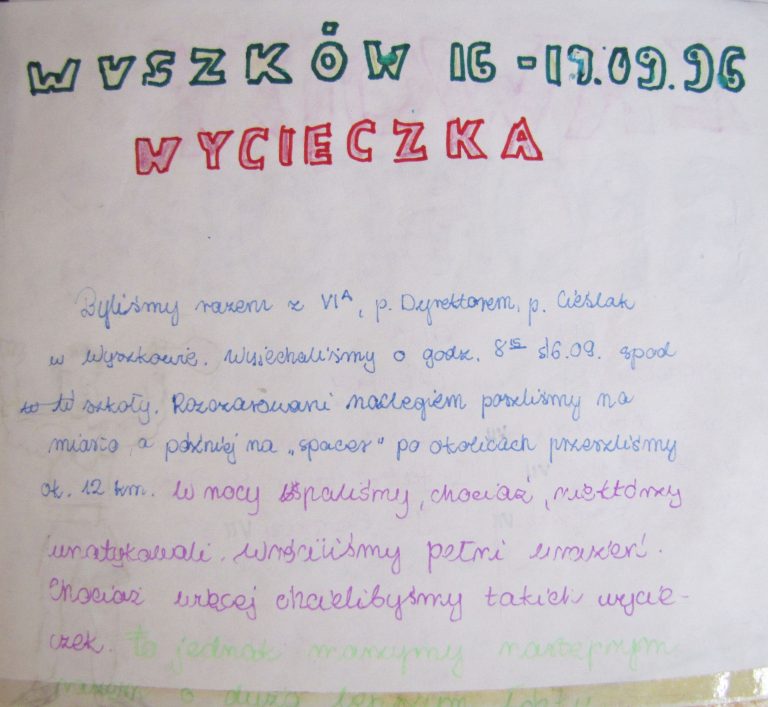 WYSZKÓW 16-17.09.96
WYCIECZKA
Byliśmy razem z VI A, p. Dyrektorem, p. Cieślak
w Wyszkowie. Wyjechaliśmy o godz. 8 16.09. spod
szkoły. Rozczarowani noclegiem poszliśmy na
miasto, a później na „spacer" po okolicach przeszliśmy
ok. 12 km. W nocy spaliśmy, chociaż niektórzy
Wróciliśmy pełni wrażeń.
Chociaż więcej chcielibyśmy takich wycie-
czek. to jednak marzymy następnym
razem o dużo lepszym